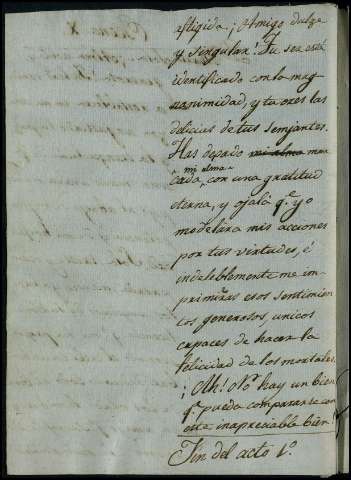 afligida; ¡Amigo dulze
y singular! Tu ser está
identificado con la mag-
nanimidad, y tu eres las
delicias de tus semjantes.
Has dejado mi alma mar
mi alma
cada, con una gratitud
eterna, y ojalá q.e yo
modelára mis acciones
por tus virtudes, é
indeleblemente me im-
primieras esos sentimien
tos generosos, unicos
capaces de hacer la
felicidad de los mortales.
¡Ah! No hay un bien
q.e pueda compararse con
este inapreciable bien!
Fin del acto 1.o